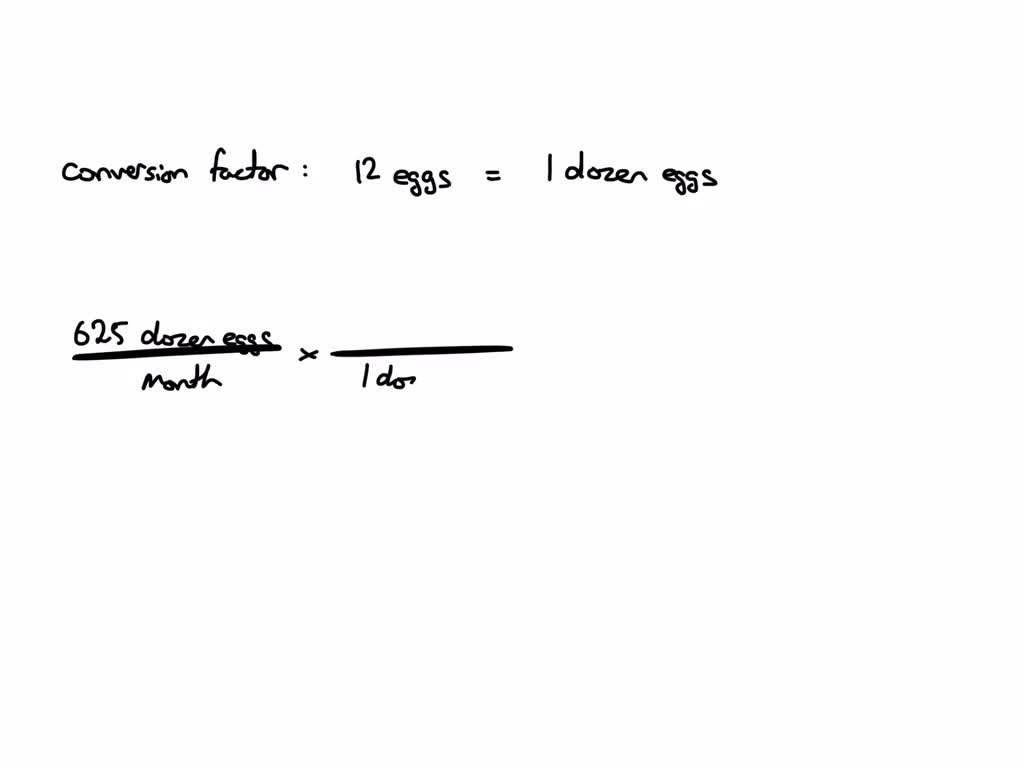 conversion factor: 12 eggs = 1 dozen eggs
625 dozen eggs
×
month 1 do